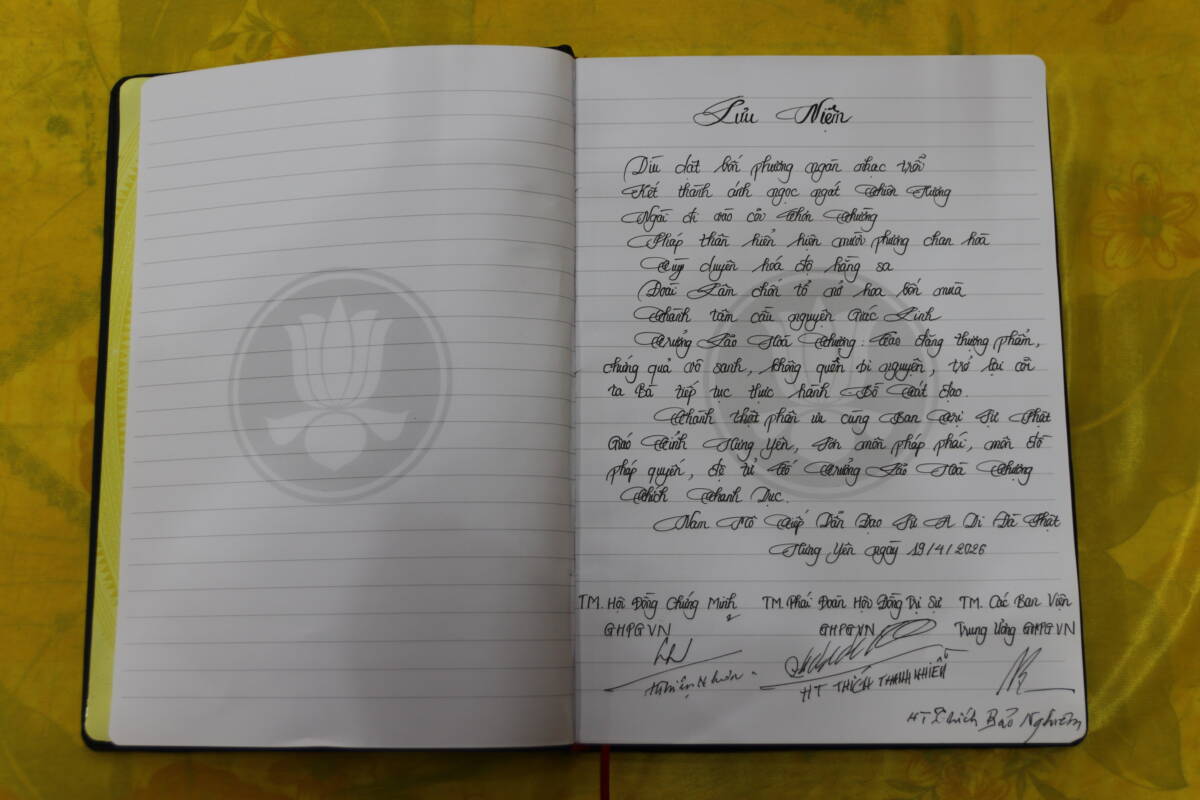 Lưu Niệm
Dìu dặt bốn phương ngàn nhạc trổi
Kết thành ánh ngọc ngát Thiên Hương
Ngài đi vào cõi Chơn Thường
Pháp thân hiển hiện mười phương chan hoà
Tùy duyên hoá độ hằng sa
Đoái Lâm chốn tổ nở hoa bốn mùa
Thành tâm cầu nguyện Giác Linh
Trưởng Lão Hoà Thượng: Cao đăng thượng phẩm,
chứng quả vô sanh, không quên bi nguyện, trở lại cõi
ta Bà tiếp tục thực hành Bồ Tát đạo.
Thành thật phân ưu cùng Ban Trị Sự Phật
Giáo Tỉnh Hưng Yên, sơn môn pháp phái, môn đồ
pháp quyến, đệ tử Cố Trưởng Lão Hoà Thượng
Thích Thanh Dục.
Nam Mô Tiếp Dẫn Đạo Sư A Di Đà Phật
Hưng Yên ngày 19/4/2026
TM. Hội Đồng Chứng Minh TM. Phái Đoàn Hội Đồng Trị Sự TM. Các Ban Viện
GHPGVN GHPGVN Trung Ương GHPGVN
HT THÍCH THANH NHIỄU
HT Thích Bảo Nghiêm